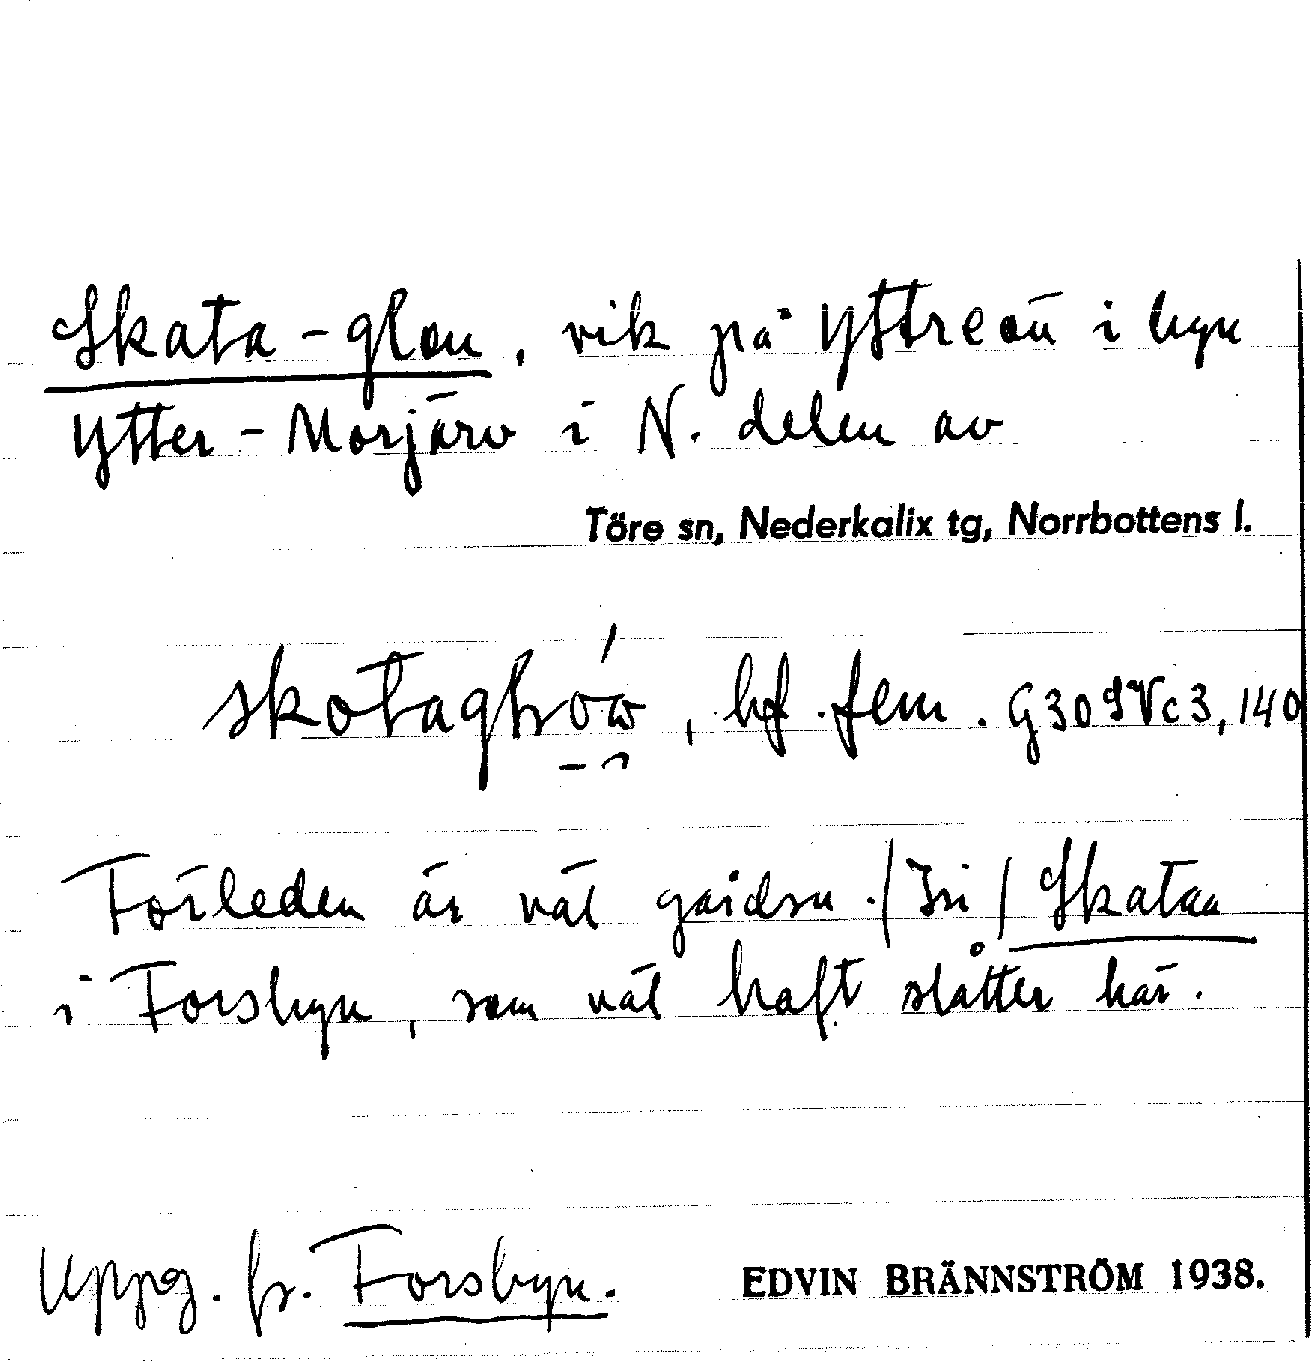 Skata-glon, vik på Yttreån i byn
Ytter-Morjärv i N. delen av
Töre sn, Nederkalix tg, Norrbottens l.
, bf. fem. G30 IVc3, 140
Förleden är väl gårdsn. (In) Skatan
i Forsbyn, som väl haft slåtter här.
Uppg. fr. Forsbyn.
EDVIN BRÄNNSTRÖM 1938.